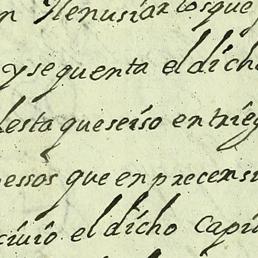 n Henusiax los que
y se quenta el dicho
desta que se iso en trieg
pessos que en precensi
civio el dicho Capi